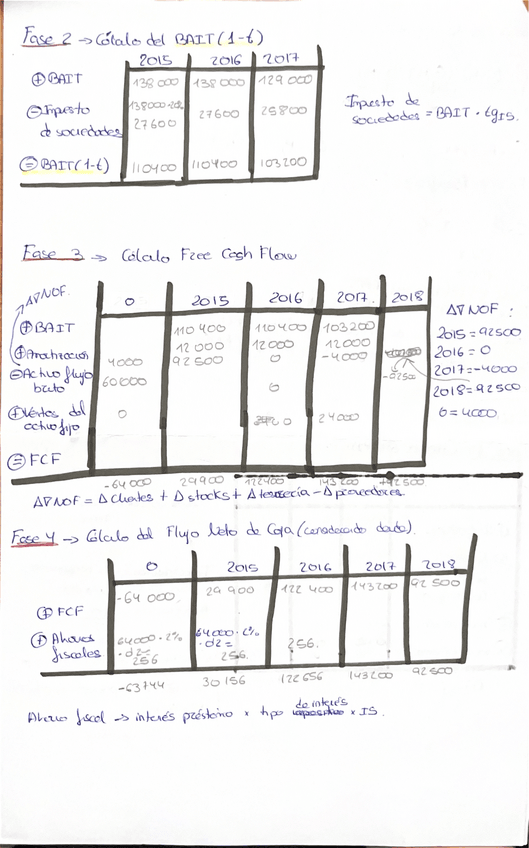 Fase 2 → Cálculo del BAIT(1-t)
2015 2016 2017
⊕ BAIT 138 000 138 000 129 000
⊖ Impuesto de sociedades 138000·0,2 27600 27600 25800
⊜ BAIT(1-t) 110400 110400 103200
Impuesto de
sociedades = BAIT · tg IS.
Fase 3 → Cálculo Free Cash Flow
ΔNOF.
0 2015 2016 2017. 2018
⊕ BAIT 110 400 110 400 103200
⊕ Amortización 12 000 12000 12000
4000 92 500 0 -4000 -92500
⊖ Activo fijo bruto 60000 0
⊕ Ventas del activo fijo 0 0 24000
⊜ FCF
-64 000 29 900 122400 143 200 +92 500
Δ∇ NOF :
2015 = 92500
2016 = 0
2017 = -4000
2018 = 92500
0 = 4000
Δ∇NOF = Δ clientes + Δ stocks + Δ tesorería - Δ proveedores
Fase 4 → Cálculo del Flujo Neto de Caja (considerando deuda).
0 2015 2016 2017 2018
⊕ FCF -64 000. 29 900 122 400 143200 92 500
⊕ Ahorros fiscales 64000 · 2% · 0,2 = 256 64000 · 2% · 0,2 = 256. 256.
-63744 30 156 122 656 143200 92 500
Ahorro fiscal → interés préstamo × tipo de interés × IS.